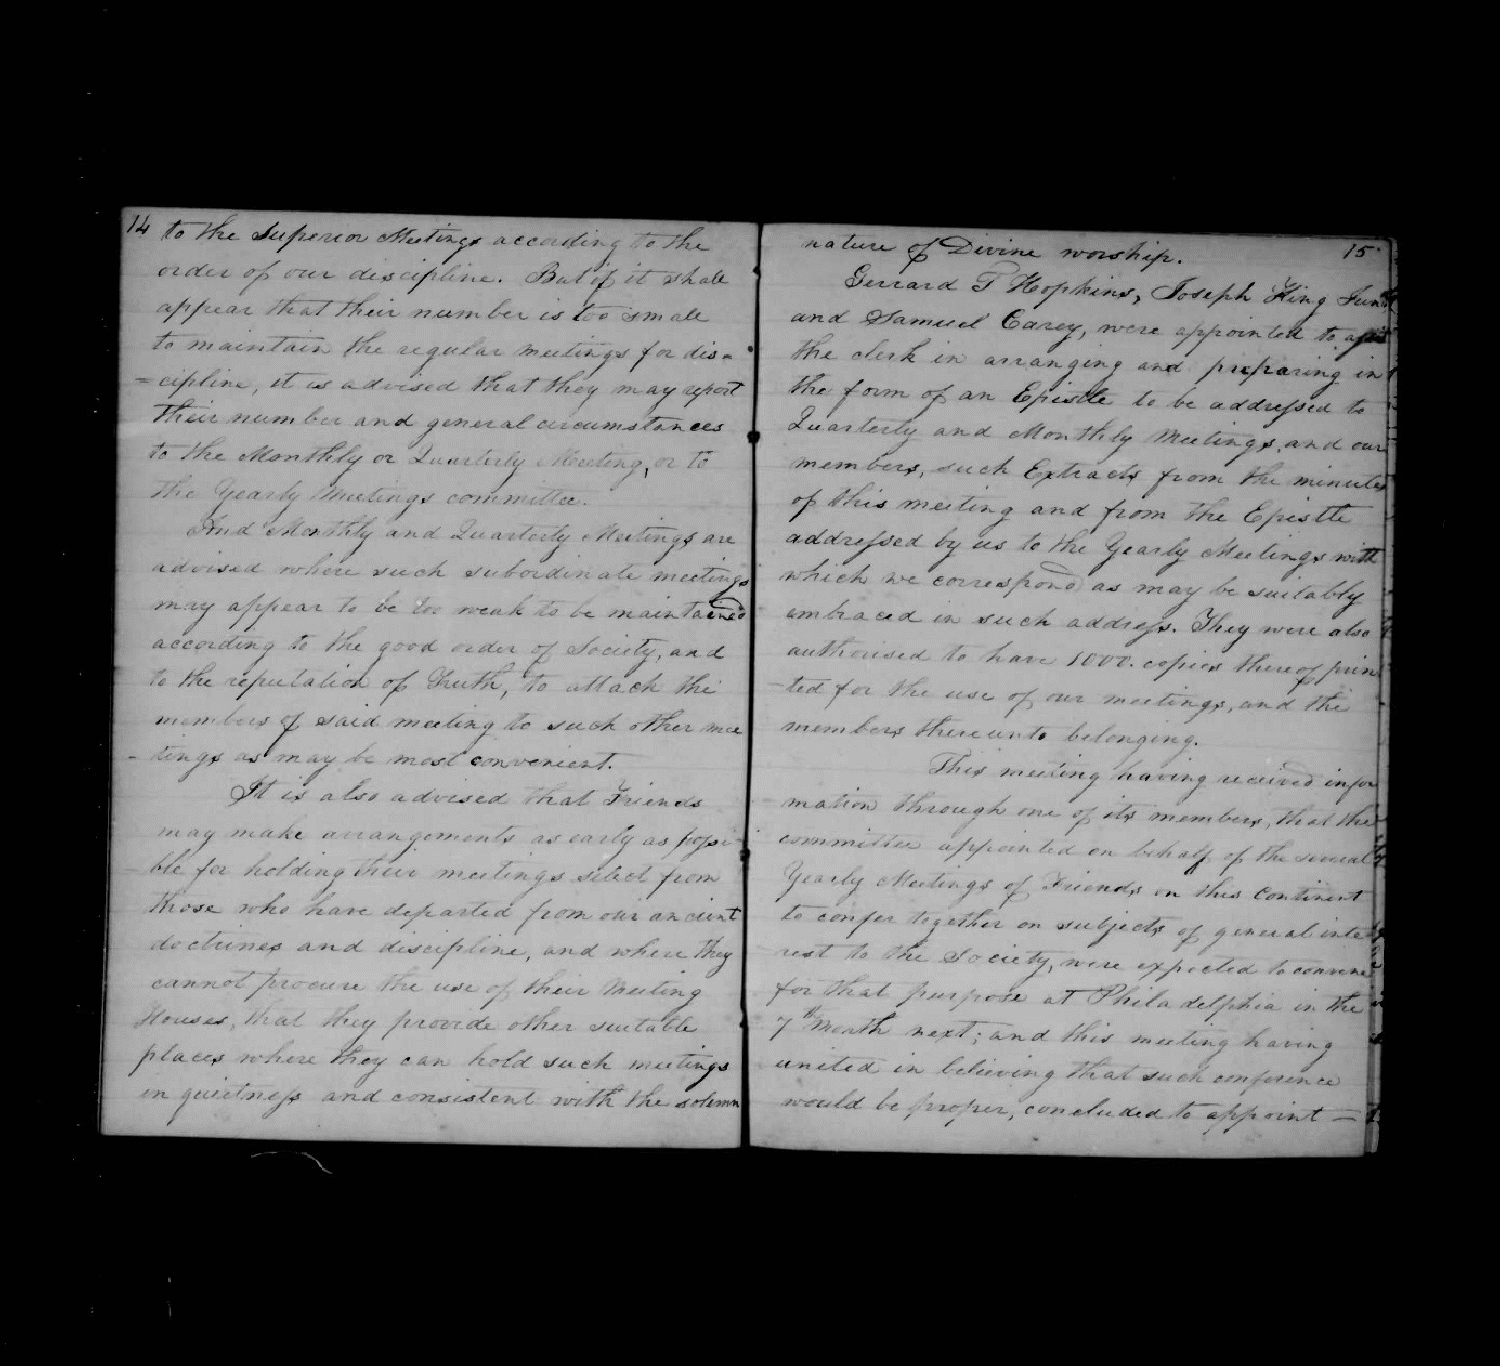 14
to the Superior Meetings according to the
order of our discipline. But if it shall
appear that their number is too small
to maintain the regular meetings for dis=
=cipline, it is advised that they may report
their number and general circumstances
to the Monthly or Quarterly Meeting, or to
the Yearly Meetings committee.
And Monthly and Quarterly Meetings are
advised where such subordinate meetings
may appear to be too weak to be maintained
according to the good order of Society, and
to the reputation of Truth, to attach the
members of said meeting to such other mee
-tings as may be most convenient.
It is also advised that Friends
may make arrangements as early as possi-
ble for holding their meetings select from
those who have departed from our ancient
doctrines and discipline, and where they
cannot procure the use of their Meeting
Houses, that they provide other suitable
places where they can hold such meetings
in quietness and consistent with the solemn
15
nature of Divine worship.
Gerrard T Hopkins, Joseph King Jun
and Samuel Carey, were appointed to assist
the clerk in arranging and preparing in
the form of an Epistle to be addressed to
Quarterly and Monthly Meetings, and our
members, such Extracts from the minutes
of this meeting and from the Epistle
addressed by us to the Yearly Meetings with
which we correspond as may be suitably
embraced in such address. They were also
authorised to have 1000. copies thereof prin
-ted for the use of our meetings, and the
members thereunto belonging.
This meeting having received infor
mation through one of its members, that the
committee appointed on behalf of the several
Yearly Meetings of Friends on this Continent
to confer together on subjects of general inte
rest to the Society, were expected to convene
for that purpose at Philadelphia in the
7th Month next; and this meeting having
united in believing that such conference
would be proper, concluded to appoint —